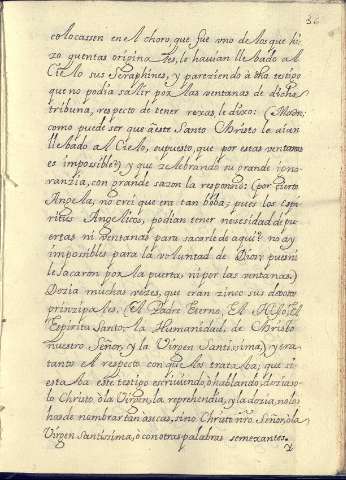 86
colocassen en el choro, que fue vno de los que hi-
zo quentas origina les, le hauian lleBado al
Cielo sus Seraphines, y pareziendo à otra testigo
que no podia salir por las ventanas de dicha
tribuna, respecto de tener rexas le dixo: (Madre
como puede ser que à este Santo Christo le aian
lleBado al Cielo, supuesto, que por estas ventanas
es impossible?) y que zeleBrando su grande igno-
ranzia, con grande sazon la respondio: (por zierto
Angela, no crei que era tan boBa; pues los Espi-
ritus Angelicos, podian tener nesesidad de pu-
ertas ni ventanas para sacarle de aqui? no ay
impossibles para la voluntad de Dios; pues ni
le sacaron por la puerta, ni por las ventanas.)
Dezia muchas vezes, que eran zinco sus devotos
prinzipales. (El Padre Eterno, El Hijo, El
Espiritu Santo, la Humanidad, de Christo
nuestro Señor, y la Virgen Santissima,) y era
tanto el respeto con que los trataBa; que si
estaBa este testigo escriuiendo, ò hablando, dezia so-
lo Christo, ò la Virgen, la reprehendia, y la dezia, no los
has de nombrar tan à secas, sino Christo ñro. Señor, ò la
Virgen Santissima, ò con otras palabras semexantes.